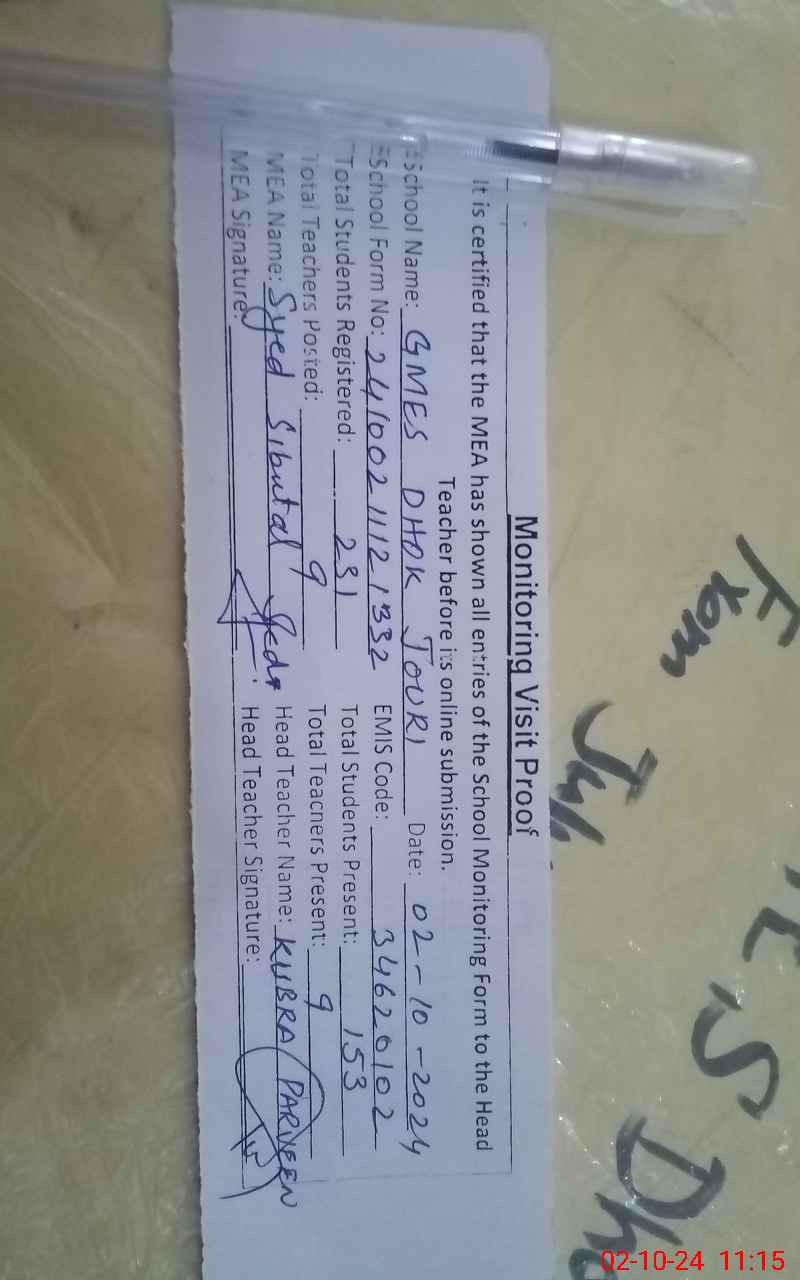 Monitoring Visit Proof
It is certified that the MEA has shown all entries of the School Monitoring Form to the Head
Teacher before its online submission.
School Name: GMES DHOK JOURI Date: 02-10-2024
School Form No: 2410021121332 EMIS Code: 34620102
Total Students Registered: 231 Total Students Present: 153
Total Teachers Posted: 9 Total Teachers Present: 9
MEA Name: Syed Sibutal Head Teacher Name: KUBRA PARVEEN
MEA Signature: Head Teacher Signature:
ES Dho
02-10-24 11:15